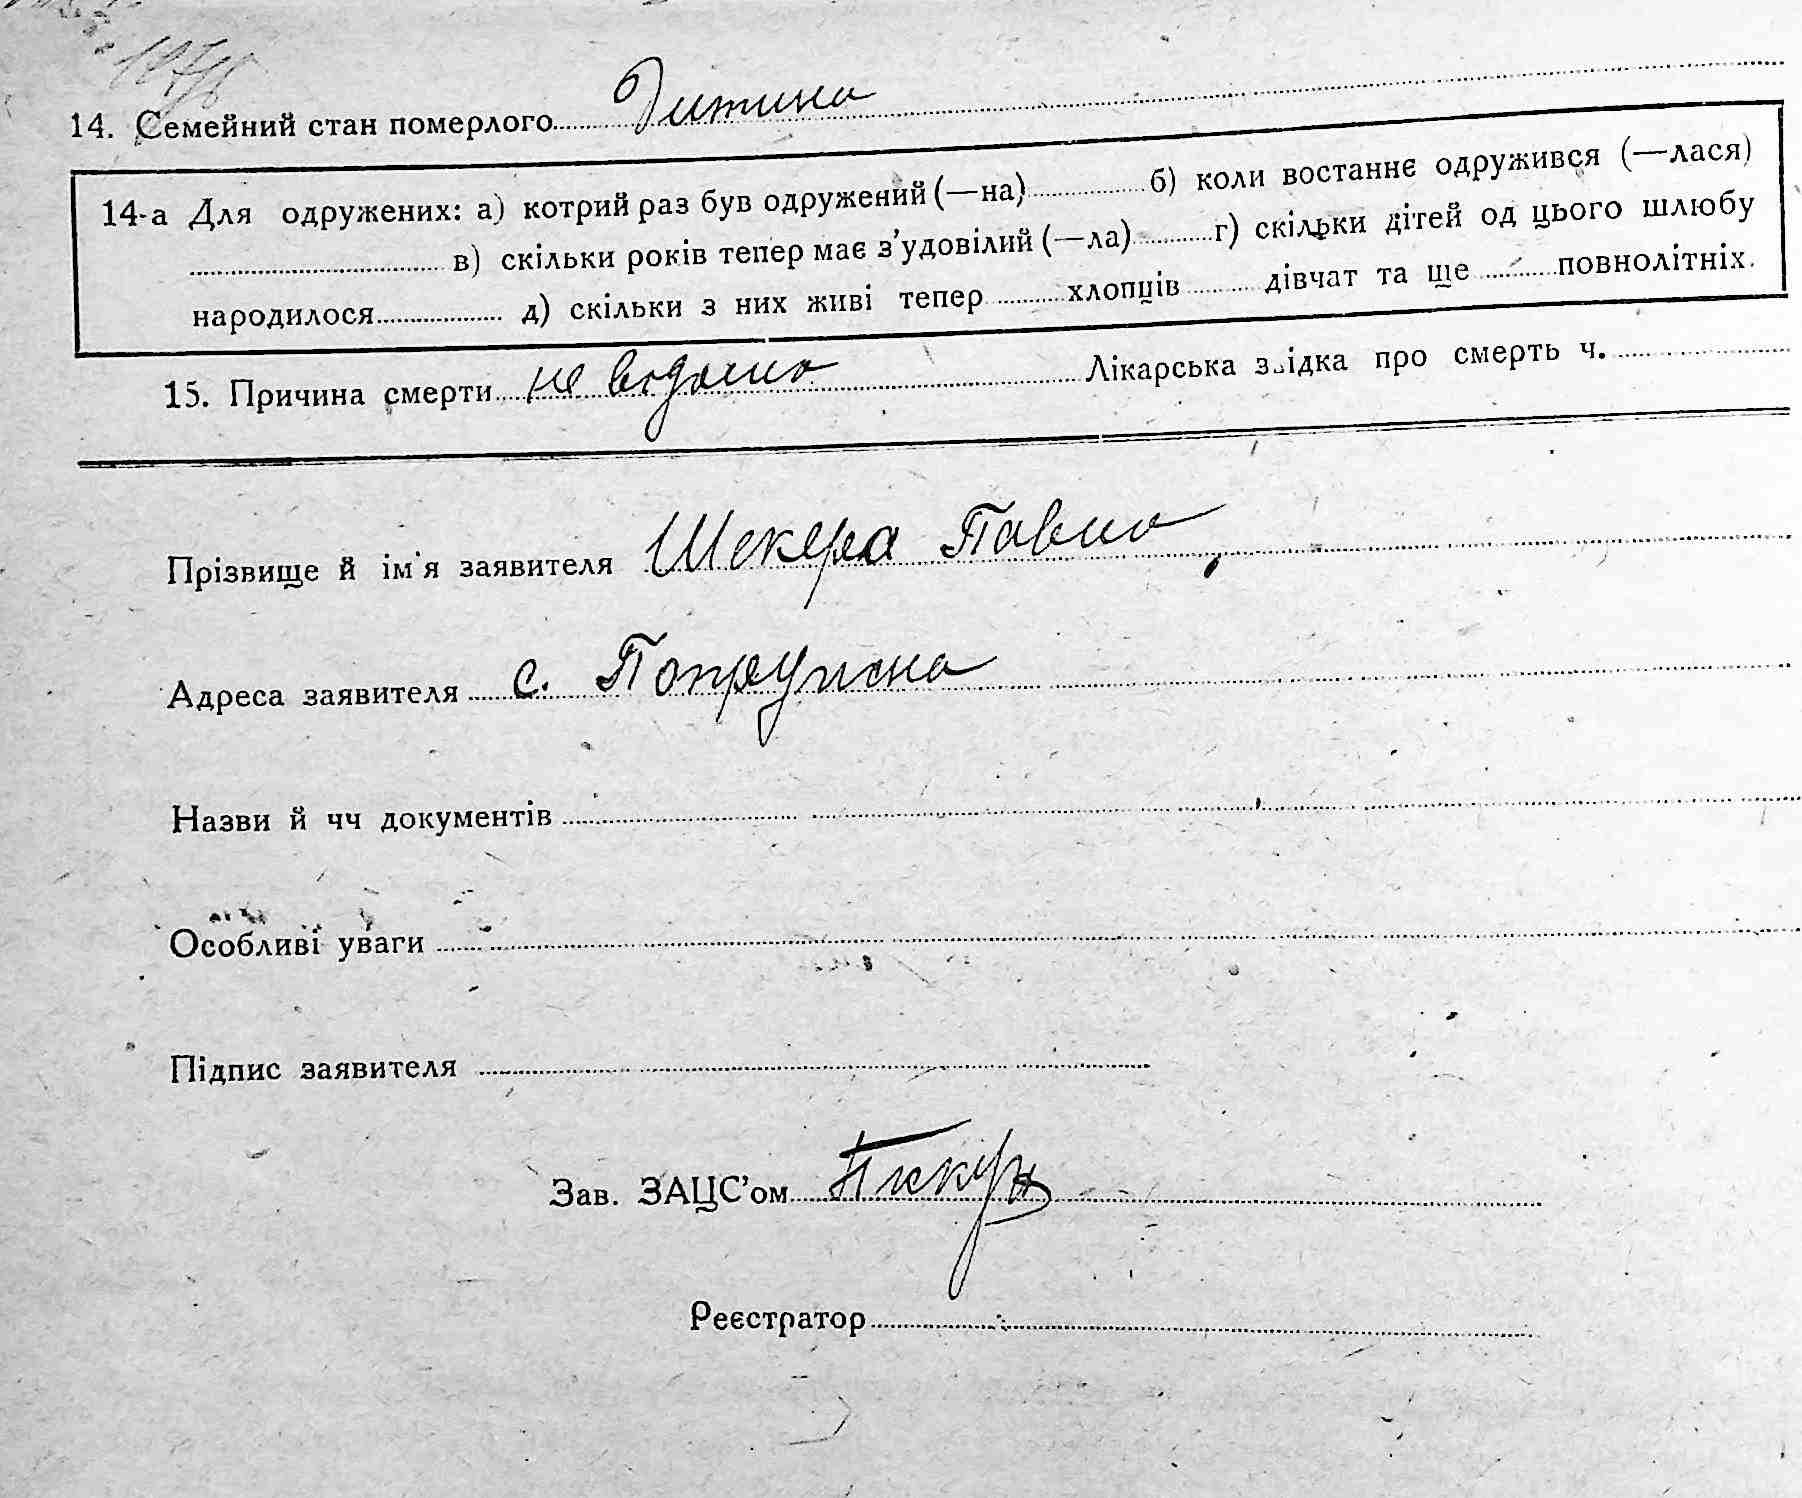 14. Семейний стан померлого Дитина
14-а Для одружених: а) котрий раз був одружений (—на) б) коли востаннє одружився (—лася)
в) скільки років тепер має з'удовілий (—ла) г) скільки дітей од цього шлюбу
народилося д) скільки з них живі тепер хлопців дівчат та ще повнолітніх.
15. Причина смерти не видомо Лікарська звідка про смерть ч.
Прізвище й ім'я заявителя Шекера Павло
Адреса заявителя с. Попружна
Назви й чч документів
Особливі уваги
Підпис заявителя
Зав. ЗАЦС'ом
Реєстратор